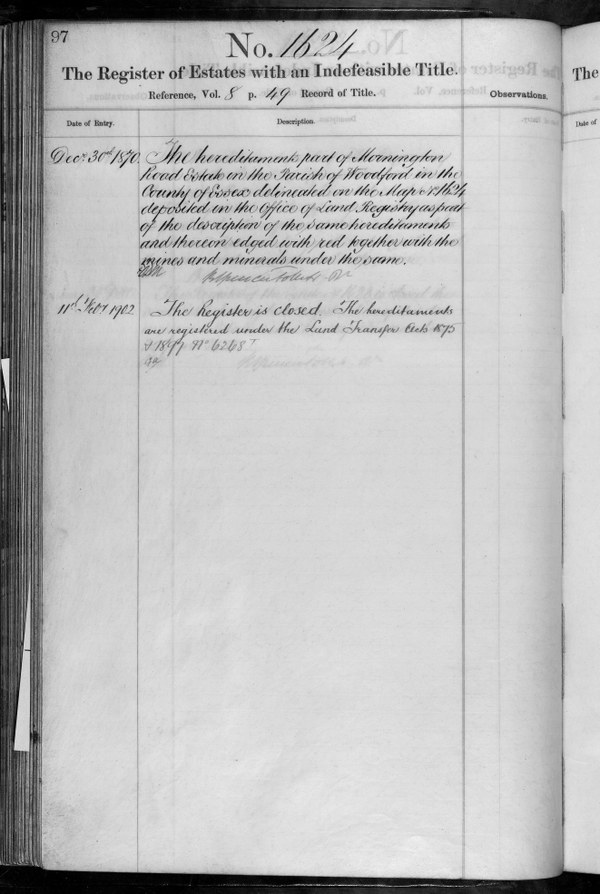 97
No. 1624
The Register of Estates with an Indefeasible Title.
Reference, Vol. 8 p. 49 Record of Title.
Observations.
Date of Entry.
Description.
Decr. 30th 1870. The hereditaments part of Mornington
Road Estate in the Parish of Woodford in the
County of Essex delineated on the Map No. 1624
deposited in the Office of Land Registry as part
of the description of the same hereditaments
and thereon edged with red together with the
mines and minerals under the same.
11th Feby 1902 The Register is closed. The hereditaments
are registered under the Land Transfer Acts 1875
& 1897 No. 6268
The
Date of